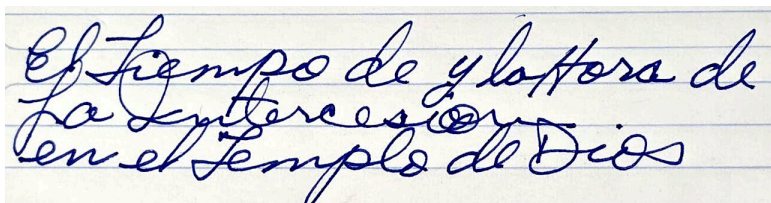 El Tiempo de y la Hora de
La Intercesión
en el Templo de Dios